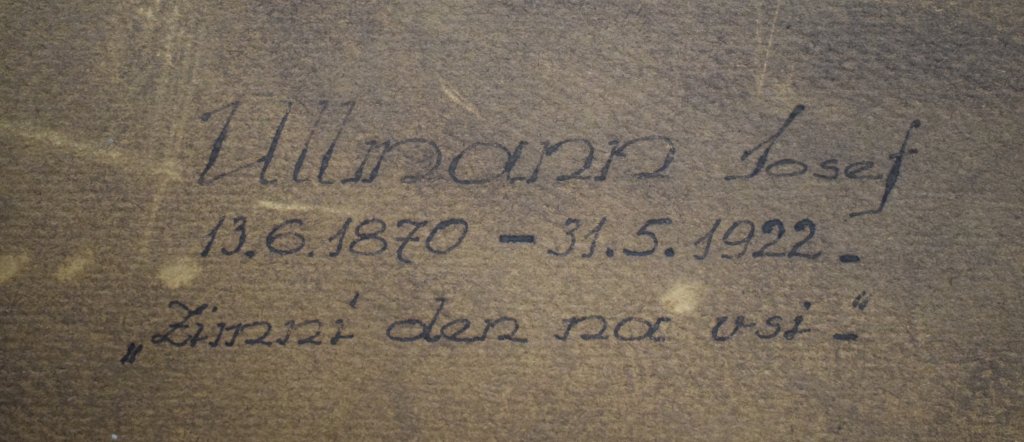 Ullmann Josef
13.6.1870 – 31.5.1922.
„Zimní den na vsi.“